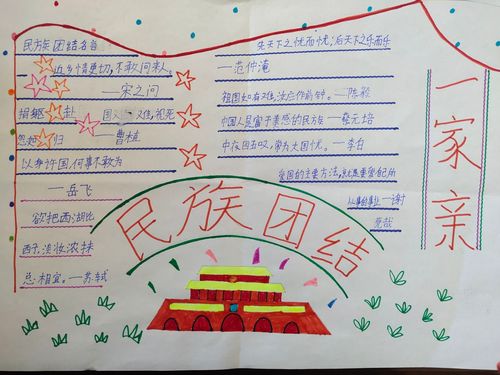 民族团结名言
近乡情更切,不敢问来人。
——宋之问
捐躯赴国 难,视死
忽如归 ——曹植
以身许国,何事不敢为
——岳飞
欲把西湖比
西子,淡妆浓抹
总相宜。——苏轼
先天下之忧而忧,后天下之乐而乐
——范仲淹
祖国如有难,汝应作前锋。——陈毅
中国人是富于美感的民族——蔡元培
中夜四五叹,常为大国忧。——李白
爱国的主要方法,就是要爱自己所
从事的事业——谢
觉哉
民族团结
一家亲